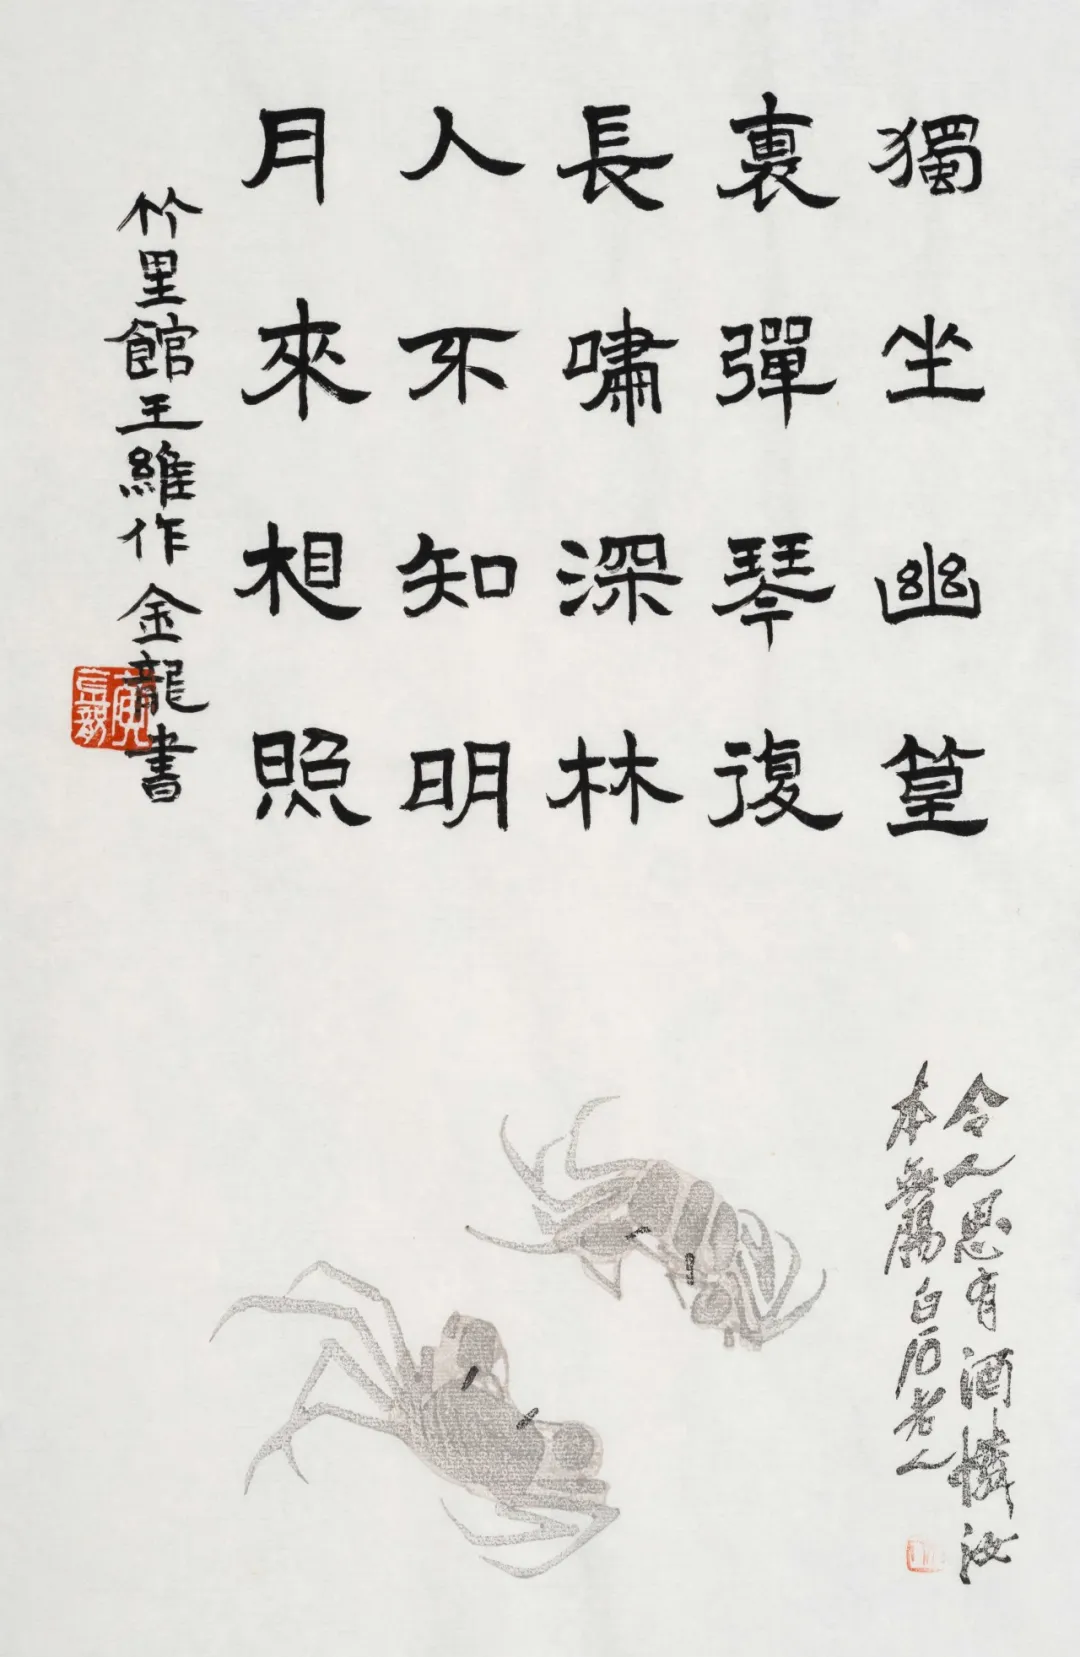 獨坐幽篁
裏彈琴復
長嘯深林
人不知明
月來相照
竹里館王維作金龍書
令人思有酒憐汝
本無腸白石老人